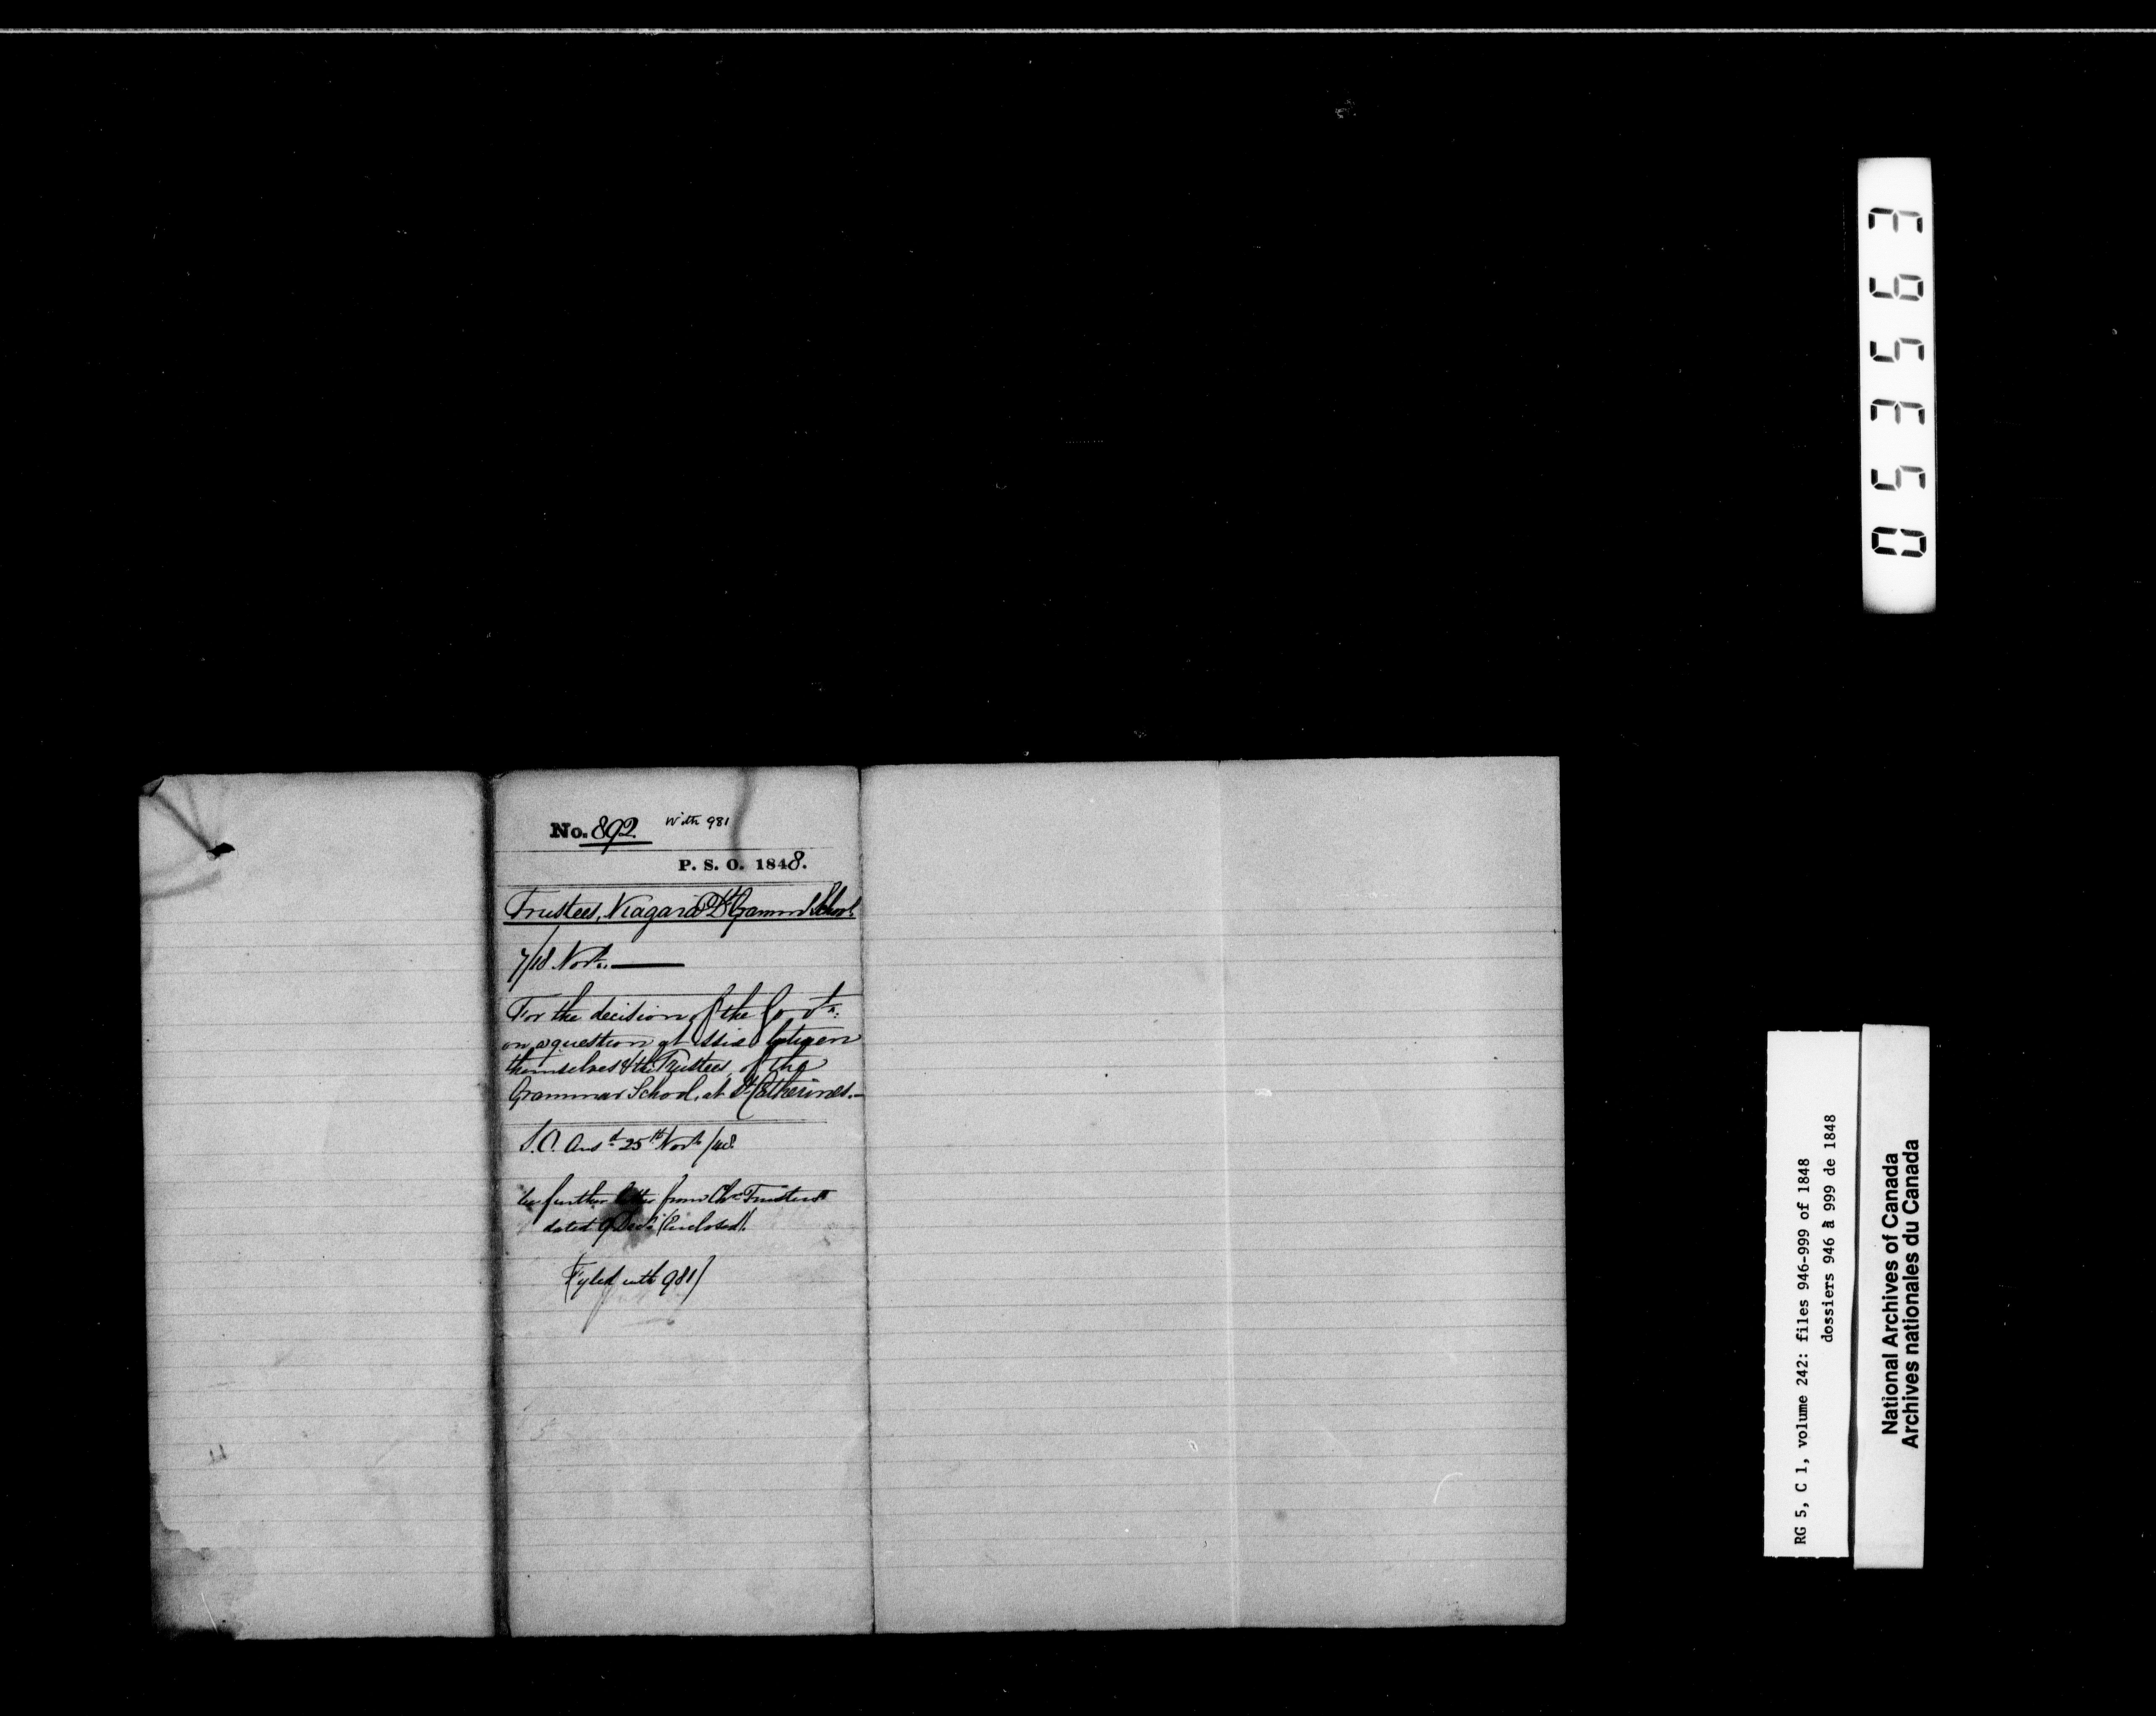 No. 892 With 981
P. S. O. 1848.
Trustees, Niagara Dt Grammr School
7/18 Novr.
For the decision of the Govt:
on a question at issue between
themselves & the Trustees, of the
Grammar School, at St Catherines.—
S.O. Ansd 25th Novr /48
See further letter from Chn Trustees
dated 9 Decr (Enclosed).
(Fyled with 981)
053563
RG 5, C 1, volume 242: files 946-999 of 1848
dossiers 946 à 999 de 1848
National Archives of Canada
Archives nationales du Canada